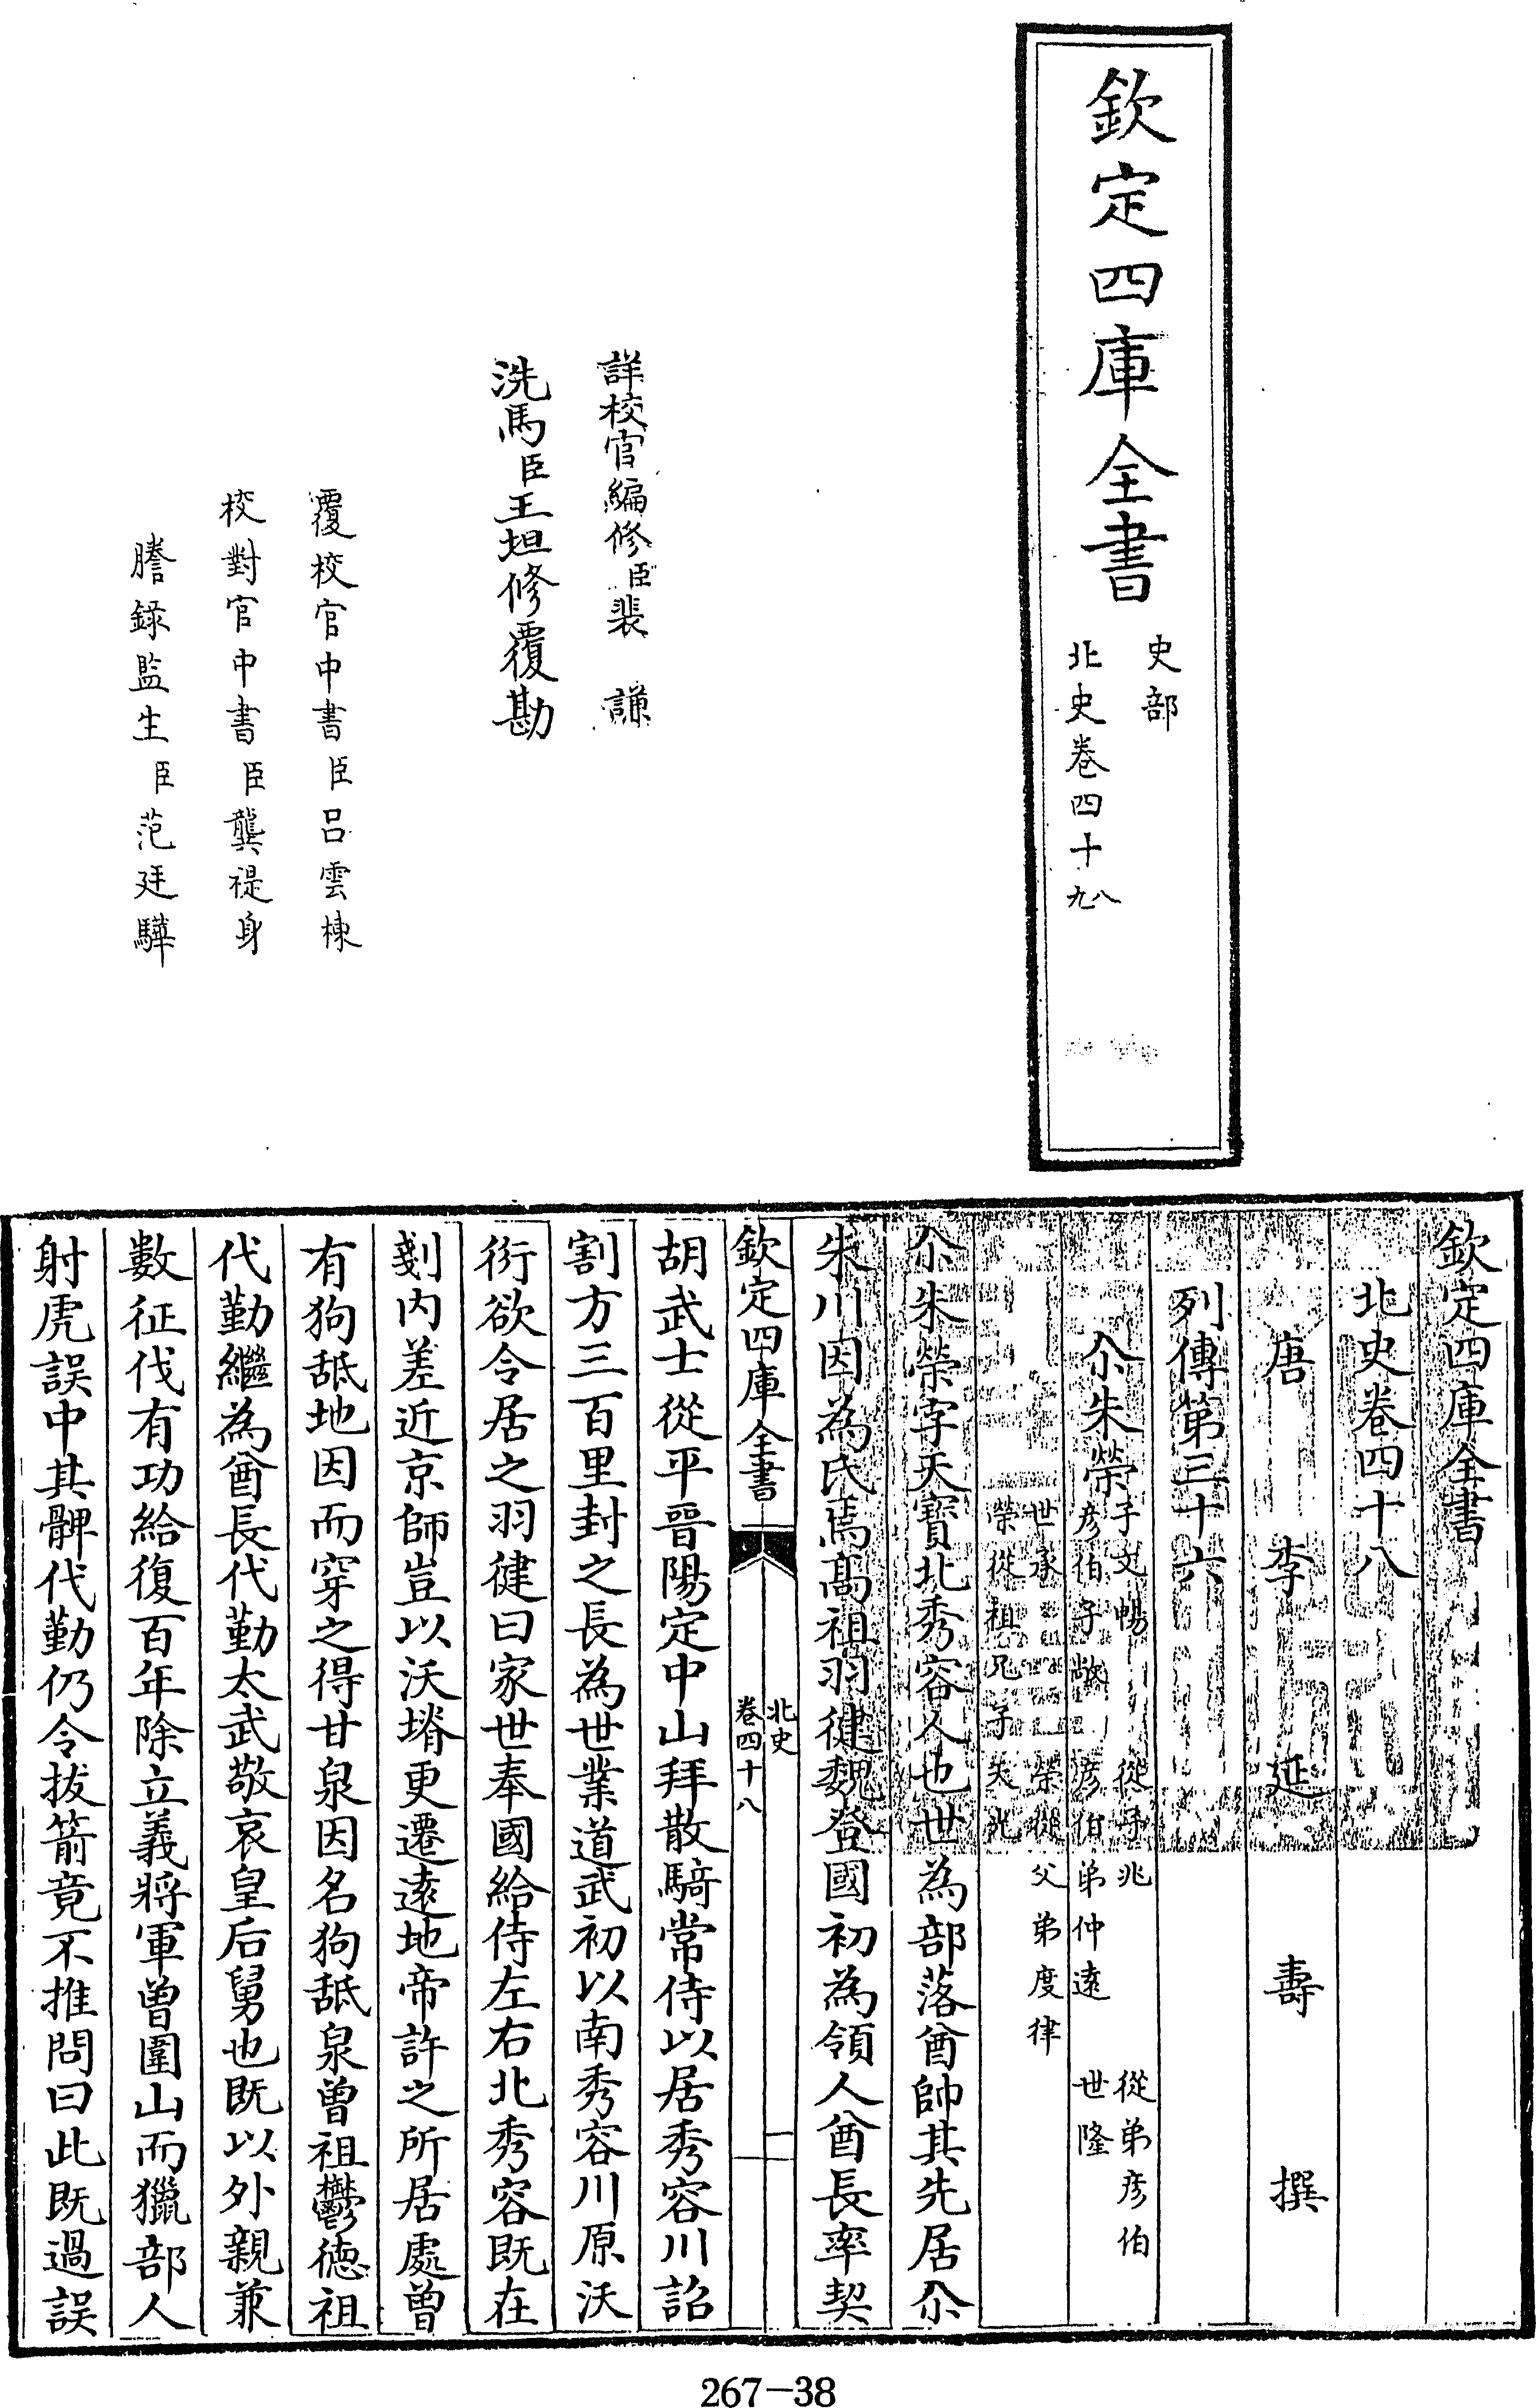 欽定四庫全書
史部
北史卷四十八九
詳校官編修臣裴謙
洗馬臣王坦修覆勘
覆校官中書臣呂雲棟
校對官中書臣龔禔身
謄錄監生臣范廷驊
欽定四庫全書
北史卷四十八
唐李延壽撰
列傳第三十六
尒朱榮子文暢 從子兆 從弟彥伯
彥伯子敞 彥伯弟仲遠 世隆
世承 榮從父弟度律
榮從祖兄子天光
尒朱榮字天寶北秀容人也世為部落酋帥其先居尒
朱川因為氏焉高祖羽健魏登國初為領人酋長率契
欽定四庫全書
北史
卷四十八
一
胡武士從平晉陽定中山拜散騎常侍以居秀容川詔
割方三百里封之長為世業道武初以南秀容川原沃
衍欲令居之羽健曰家世奉國給侍左右北秀容既在
剗內差近京師豈以沃塉更遷遠地帝許之所居處曾
有狗舐地因而穿之得甘泉因名狗舐泉曾祖鬱德祖
代勤繼為酋長代勤太武敬哀皇后舅也既以外親兼
數征伐有功給復百年除立義將軍曾圍山而獵部人
射虎誤中其髀代勤仍令拔箭竟不推問曰此既過誤
267-38